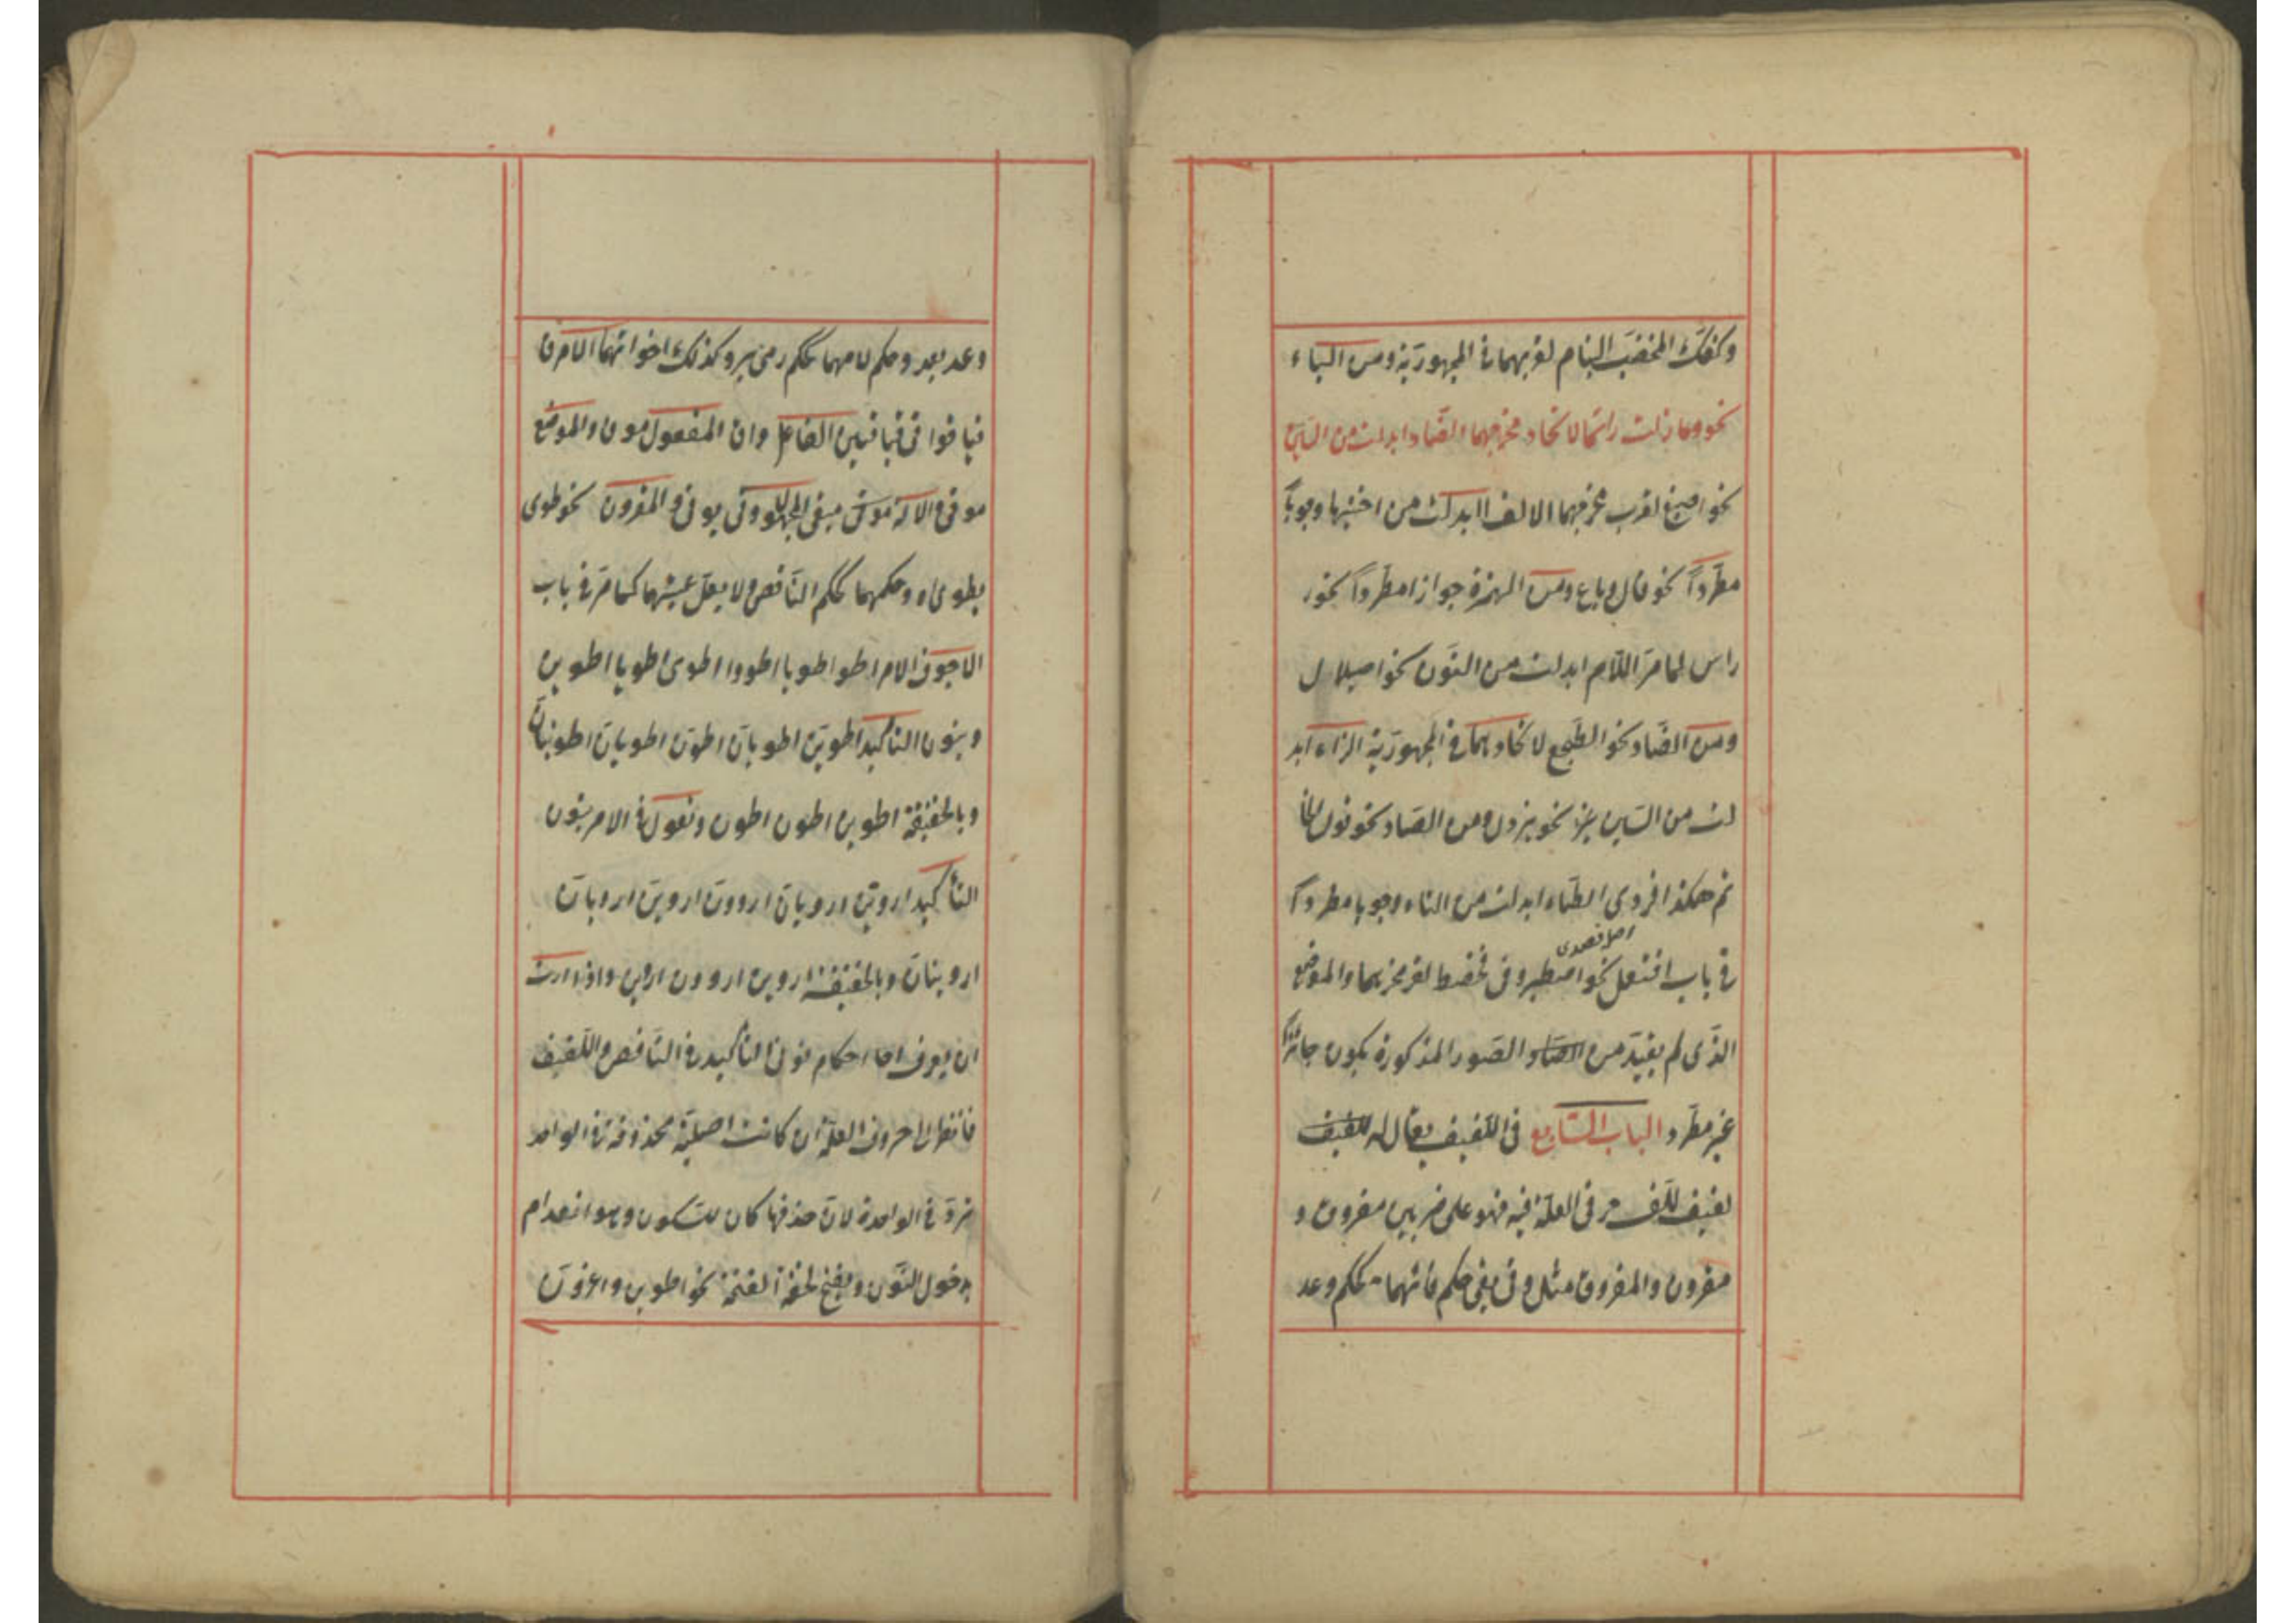 وكفك المخضب البنام لقربهما في المجهورية ومن الباء
نحو وما زلت راتما لاتحاد مخرجهما الصاد ابدلت من السين
نحو اصبغ لقرب مخرجهما الالف ابدلت من اختيها وجوبا
مطردا نحو قال وباع ومن الهمزة جوازا مطردا نحو
راس لما مر اللام ابدلت من النون نحو اصيلال
ومن الضاد نحو الطجع لاتحادهما في المجهورية الزاء ابد
لت من السين نحو يزدل ومن الصاد نحو قول الحا
تم هكذا فزدى الطاء ابدلت من التاء وجوبا مطردا
اصل فصدى
في باب افتعل نحو اصطبر وفي فحصط لقرب مخرجهما والموضع
الذى لم يقيد من الصاد الصور المذكورة يكون جائزا
غير مطرد الباب السابع في اللفيف يقال له للفيف
لفيف للف حرفى العلة فيه فهو على ضربين مفروق و
مقرون والمفروق مثل وقى يقى حكم فائهما كحكم وعد
وعد يعد وحكم لامهما كحكم رمى يرمى وكذلك اخواتهما الامر ق
قيا قوا قى قيا قين الفاعل واق المفعول موقى والموضع
موقى والآلة ميقى المجهول وقى يوقى والمقرون نحو طوى
يطوى وحكمهما كحكم الناقص ولا يعل عينهما كما مر في باب
الاجوف الامر اطو اطويا اطووا اطوى اطويا اطوين
وبنون التاكيد اطوين اطويان اطون اطوين اطويان اطوينان
وبالخفيفة اطوين اطون اطون وتقول في الامر بنون
التأكيد اروين ارويان ارون اروين ارويان
اروينان وبالخفيفة اروين ارون اروين واذا اردت
ان يعرف احكام نونى التأكيد في الناقص واللفيف
فانظر الى حروف العلة ان كانت اصلية محذوفة في الواحد
ترد في الواحدة لان حذفها كان للسكون وهو انعدام
بدخول النون ويفتح لخفة الفتحة نحو اطوين واغزون